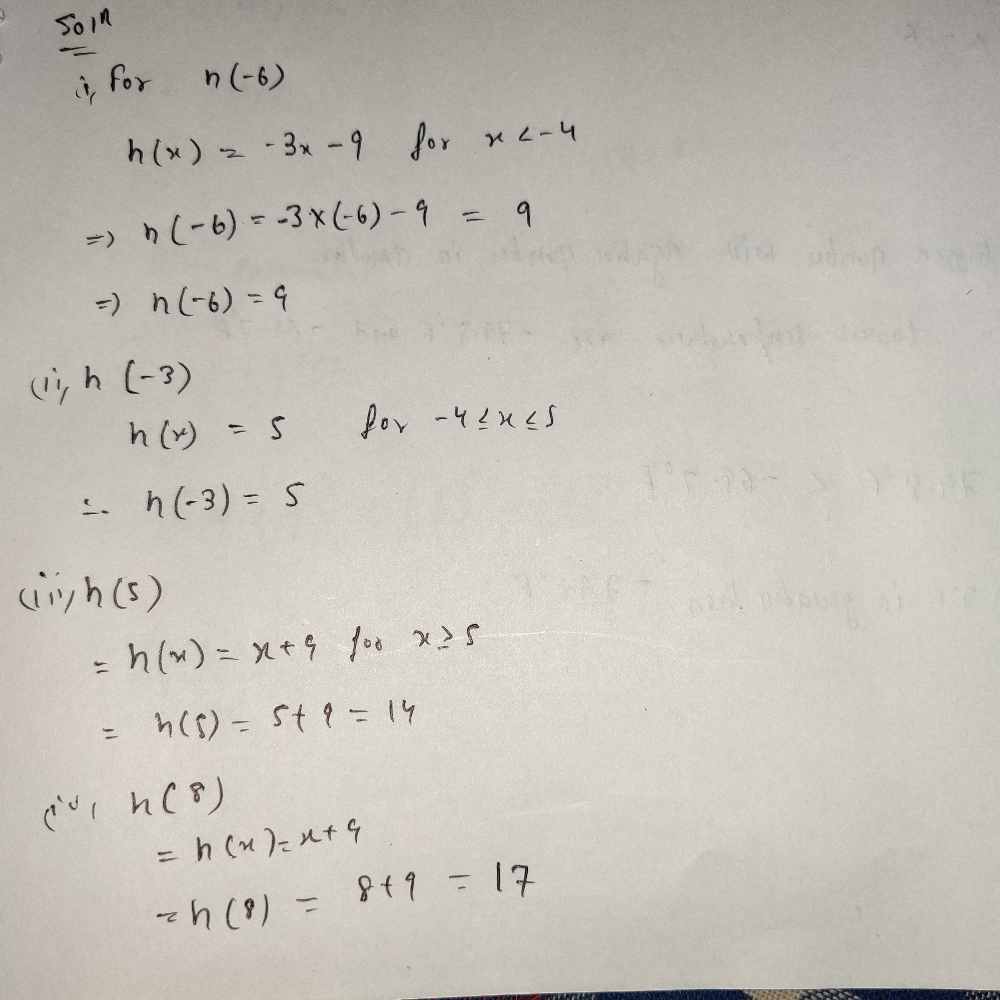 Solⁿ
i, for h(-6)
h(x) = -3x - 9 for x < -4
=> h(-6) = -3x(-6) - 9 = 9
=> h(-6) = 9
(ii, h (-3)
h(x) = 5 for -4 ≤ x ≤ 5
∴ h(-3) = 5
(iii, h(5)
= h(x) = x+9 for x ≥ 5
= h(5) = 5+9 = 14
(iv, h(8)
= h(x) = x+9
= h(8) = 8+9 = 17